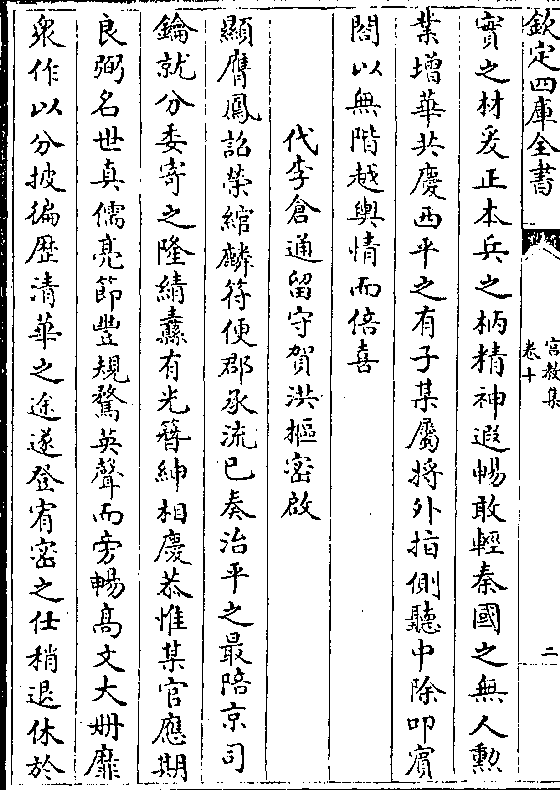 欽定四庫全書
宮教集
卷十
二
實之材爰正本兵之柄精神遐暢敢輕秦國之無人勲
業增華共慶西平之有子某屬將外指側聽中除叩賔
閤以無階越輿情而倍喜
代李倉通留守賀洪樞密啟
顯膺鳳詔榮綰麟符便郡承流已奏治平之最陪京司
鑰就分委寄之隆綪纛有光簪紳相慶恭惟某官應期
良弼名世真儒亮節豐規騖英聲而旁暢高文大冊靡
衆作以分披徧歴清華之途遂登宥密之仕稍退休於